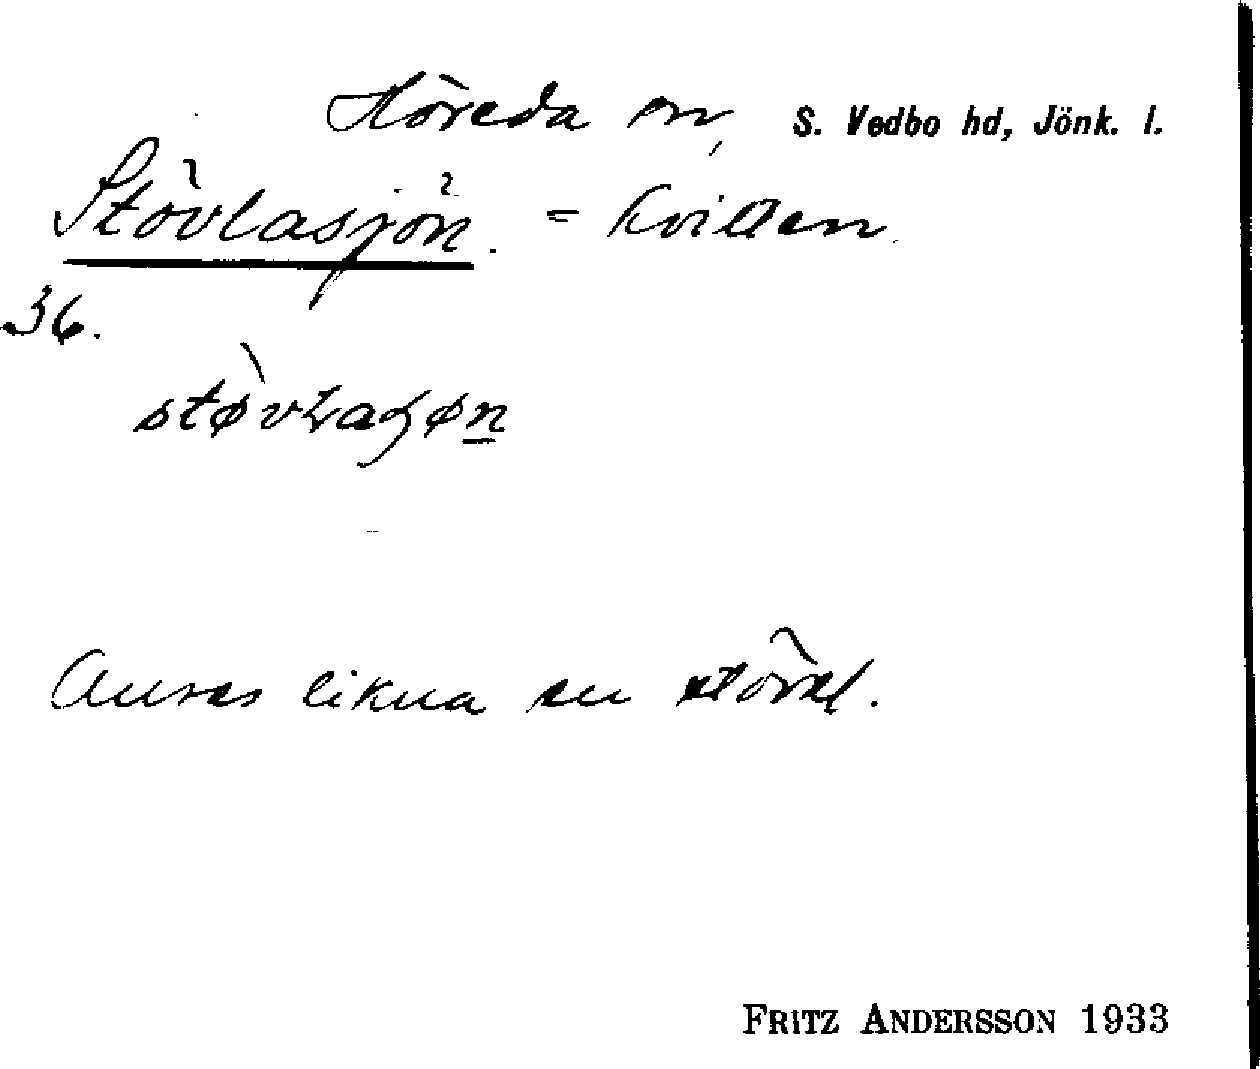 Höreda sn, S. Vedbo hd, Jönk. l.
Stövlasjön. = Kvillen.
36.
støvlaʃøn
Anses likna en stövel.
FRITZ ANDERSSON 1933